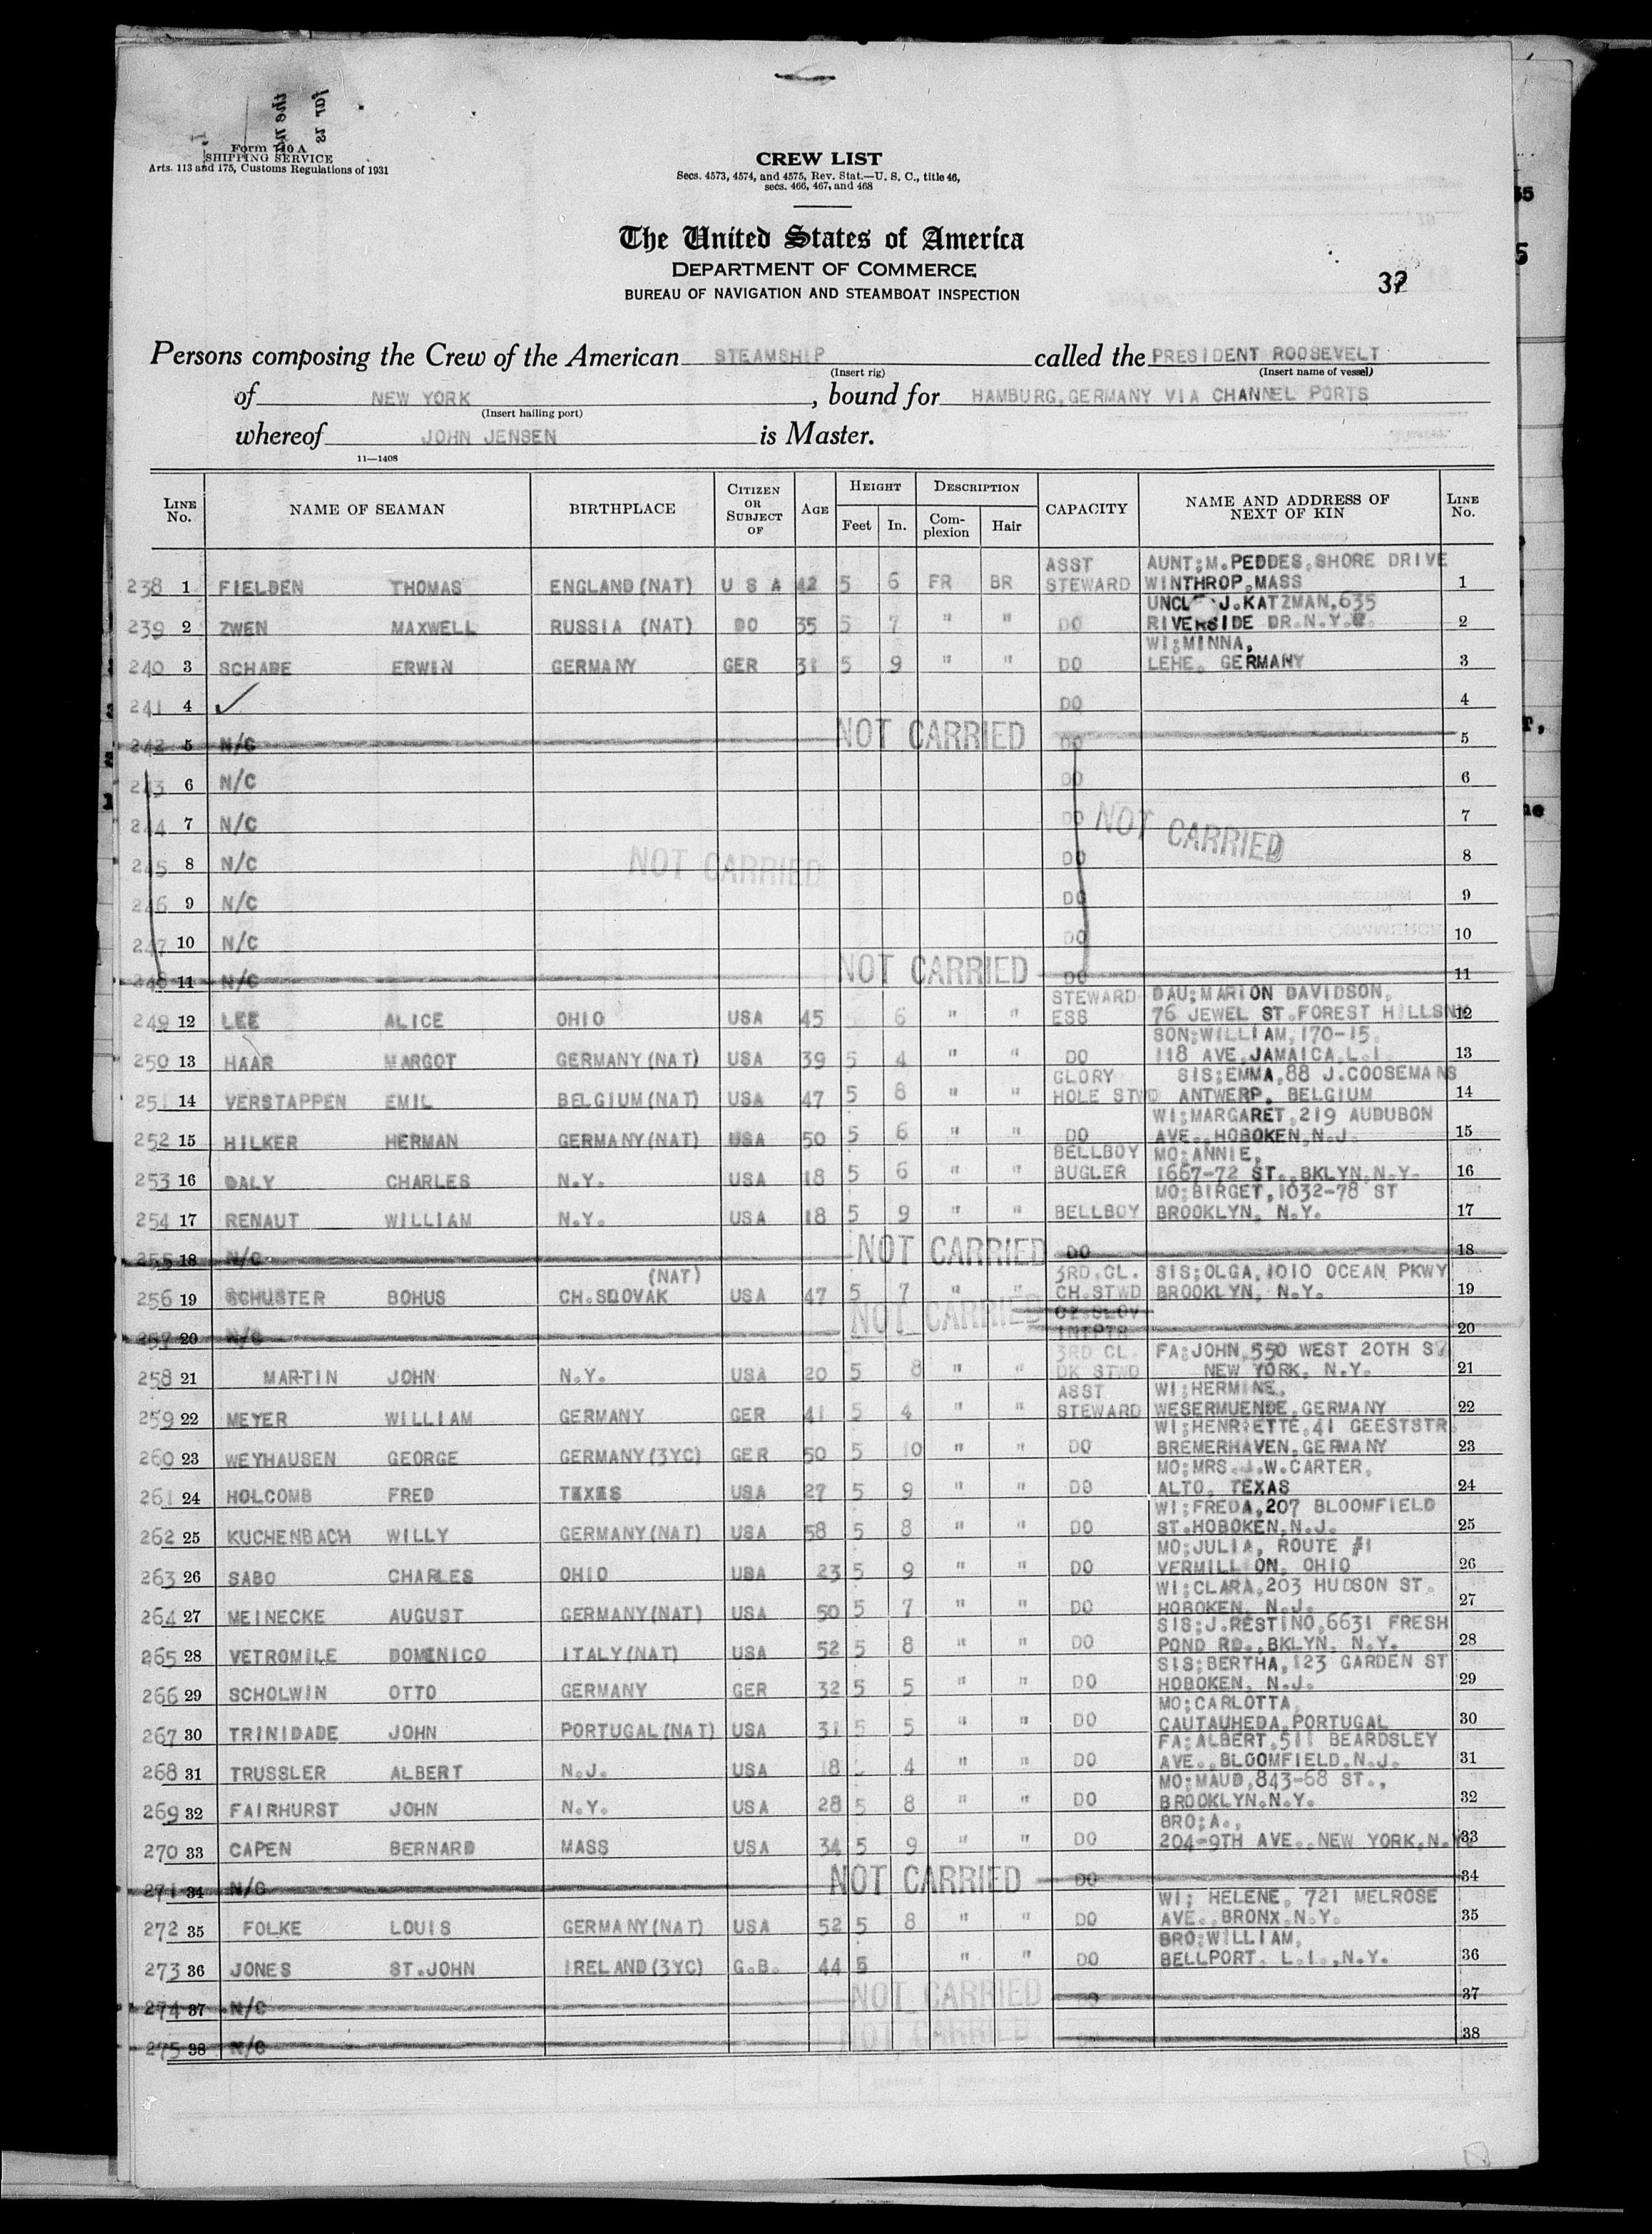 Form 710 A
SHIPPING SERVICE
Arts. 113 and 175, Customs Regulations of 1931
CREW LIST
Secs. 4573, 4574, and 4575, Rev. Stat.—U. S. C., title 46,
secs. 466, 467, and 468
The United States of America
DEPARTMENT OF COMMERCE
BUREAU OF NAVIGATION AND STEAMBOAT INSPECTION
Persons composing the Crew of the American STEAMSHIP called the PRESIDENT ROOSEVELT
(Insert rig) (Insert name of vessel)
of NEW YORK, bound for HAMBURG,GERMANY VIA CHANNEL PORTS
(Insert hailing port)
whereof JOHN JENSEN is Master.
11—1408
LINE No. NAME OF SEAMAN BIRTHPLACE CITIZEN OR SUBJECT OF AGE HEIGHT Feet In. DESCRIPTION Complexion Hair CAPACITY NAME AND ADDRESS OF NEXT OF KIN LINE No.
ASST AUNT;M.PEDDES,SHORE DRIVE
238 1 FIELDEN THOMAS ENGLAND(NAT) U S A 42 5 6 FR BR STEWARD WINTHROP,MASS 1
J.KATZMAN,635
239 2 ZWEN MAXWELL RUSSIA (NAT) DO 35 5 7 " " DO RIVERSIDE DR.N.Y. 2
WI;MINNA,
240 3 SCHABE ERWIN GERMANY GER 31 5 9 " " DO LEHE, GERMANY 3
241 4 ✓ DO 4
242 5 N/C NOT CARRIED DO 5
243 6 N/C DO 6
244 7 N/C DO NOT CARRIED 7
245 8 N/C NOT CARRIED DO 8
246 9 N/C DO 9
247 10 N/C DO 10
248 11 N/C NOT CARRIED DO 11
STEWARD DAU;MARION DAVIDSON,
249 12 LEE ALICE OHIO USA 45 6 " " ESS 76 JEWEL ST.FOREST HILLSNY 12
SON;WILLIAM,170-15
250 13 HAAR MARGOT GERMANY(NAT) USA 39 5 4 " " DO 118 AVE,JAMAICA,L.I. 13
GLORY SIS;EMMA,88 J.COOSEMANS
251 14 VERSTAPPEN EMIL BELGIUM(NAT) USA 47 5 8 " " HOLE STWD ANTWERP, BELGIUM 14
WI;MARGARET,219 AUDUBON
252 15 HILKER HERMAN GERMANY(NAT) USA 50 5 6 " " DO AVE.,HOBOKEN,N.J. 15
BELLBOY MO;ANNIE,
253 16 DALY CHARLES N.Y. USA 18 5 6 " " BUGLER 1667-72 ST.,BKLYN.N.Y. 16
MO;BIRGET,1032-78 ST
254 17 RENAUT WILLIAM N.Y. USA 18 5 9 " " BELLBOY BROOKLYN, N.Y. 17
255 18 N/C NOT CARRIED DO 18
(NAT) 3RD.CL. SIS;OLGA,1010 OCEAN PKWY
256 19 SCHUSTER BOHUS CH.SLOVAK USA 47 5 7 " " CH.STWD BROOKLYN, N.Y. 19
CZ.SLOV
257 20 N/C NOT CARRIED INTPTR 20
3RD CL. FA;JOHN,550 WEST 20TH ST
258 21 MARTIN JOHN N.Y. USA 20 5 8 " " DK STWD NEW YORK, N.Y. 21
ASST WI;HERMINE,
259 22 MEYER WILLIAM GERMANY GER 41 5 4 " " STEWARD WESERMUENDE,GERMANY 22
WI;HENRIETTE,41 GEESTSTR.
260 23 WEYHAUSEN GEORGE GERMANY(3YC) GER 50 5 10 " " DO BREMERHAVEN,GERMANY 23
MO;MRS. W.CARTER,
261 24 HOLCOMB FRED TEXES USA 27 5 9 " " DO ALTO, TEXAS 24
WI;FREDA,207 BLOOMFIELD
262 25 KUCHENBACH WILLY GERMANY(NAT) USA 58 5 8 " " DO ST.HOBOKEN,N.J. 25
MO;JULIA, ROUTE #1
263 26 SABO CHARLES OHIO USA 23 5 9 " " DO VERMILLION, OHIO 26
WI;CLARA,203 HUDSON ST.
264 27 MEINECKE AUGUST GERMANY(NAT) USA 50 5 7 " " DO HOBOKEN, N.J. 27
SIS;J.RESTINO,6631 FRESH
265 28 VETROMILE DOMENICO ITALY(NAT) USA 52 5 8 " " DO POND RD.,BKLYN. N.Y. 28
SIS;BERTHA,123 GARDEN ST
266 29 SCHOLWIN OTTO GERMANY GER 32 5 5 " " DO HOBOKEN, N.J. 29
MO;CARLOTTA,
267 30 TRINIDADE JOHN PORTUGAL(NAT) USA 31 5 5 " " DO CAUTAUHEDA,PORTUGAL 30
FA;ALBERT,511 BEARDSLEY
268 31 TRUSSLER ALBERT N.J. USA 18 4 " " DO AVE.,BLOOMFIELD,N.J. 31
MO;MAUD,843-68 ST.,
269 32 FAIRHURST JOHN N.Y. USA 28 5 8 " " DO BROOKLYN.N.Y. 32
BRO;A.,
270 33 CAPEN BERNARD MASS USA 34 5 9 " " DO 204-9TH AVE.,NEW YORK,N.Y. 33
271 34 N/C NOT CARRIED DO 34
WI; HELENE, 721 MELROSE
272 35 FOLKE LOUIS GERMANY(NAT) USA 52 5 8 " " DO AVE.,BRONX.N.Y. 35
BRO;WILLIAM,
273 36 JONES ST.JOHN IRELAND(3YC) G.B. 44 5 " " DO BELLPORT, L.I.,N.Y. 36
274 37 N/C NOT CARRIED 37
275 38 N/C NOT CARRIED 38